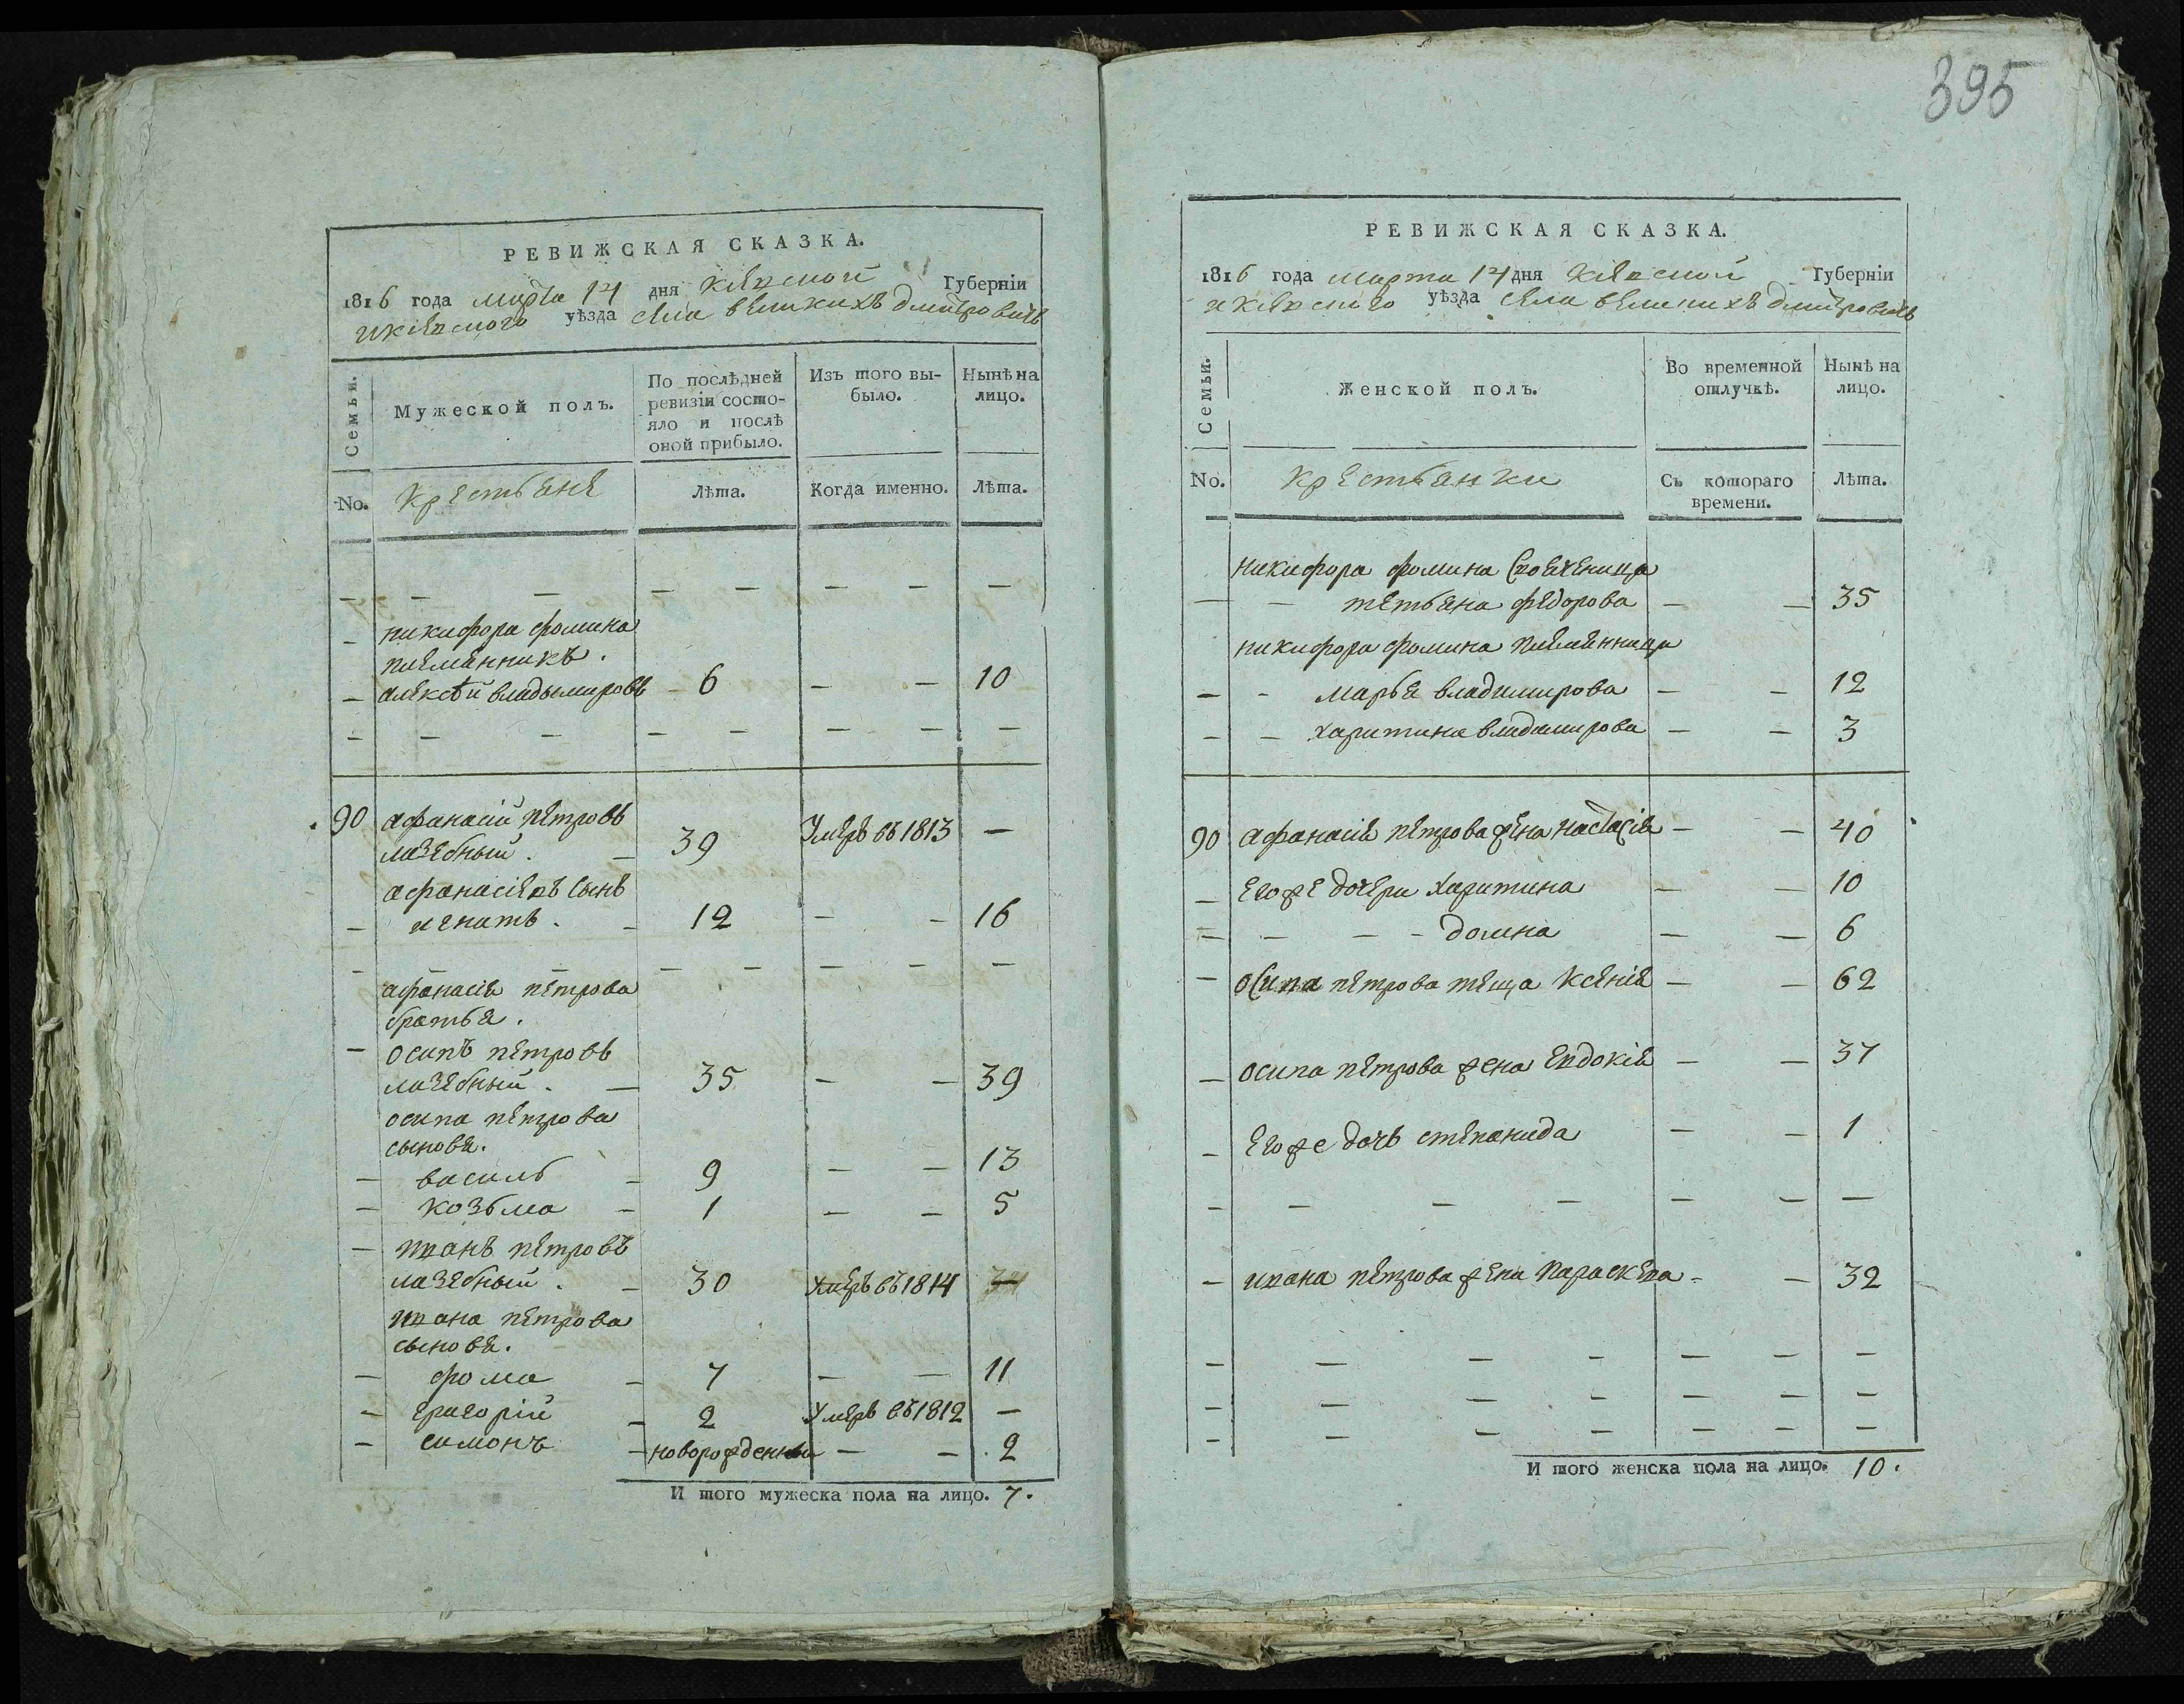 395
РЕВИЖСКАЯ СКАЗКА.
1816 года марта 14 дня кіевской Губерніи
и кіевского уѣзда села великихъ дмитровичъ
Семьи.
Мужеской полъ.
По послѣдней ревизіи состояло и послѣ оной прибыло.
Изъ того выбыло.
Нынѣ на лицо.
No.
крестьяне
Лѣта.
Когда именно.
Лѣта.
— — — — — — — —
— никифора фомина
племянникъ.
— алексѣй владымировъ — 6 — — 10
— — — — — — — —
90 афанасій петровъ
лазебный. — 39 Умеръ въ 1813 —
афанасіевъ сынъ
— игнатъ. — 12 — — 16
— — — — — — — —
афанасія петрова
братья.
— осипъ петровъ
лазебный. — 35 — — 39
осипа петрова
сыновя.
— василь — 9 — — 13
— козьма — 1 — — 5
— иванъ петровъ
лазебный. — 30 Умеръ въ 1814 —
ивана петрова
сыновя.
— фома — 7 — — 11
— григорій — 2 Умеръ въ 1812 —
— симонъ — новорожденный — — 2
И того мужеска пола на лицо. 7.
РЕВИЖСКАЯ СКАЗКА.
1816 года марта 14 дня кіевской Губерніи
и кіевского уѣзда села великихъ дмитровичъ
Семьи.
Женской полъ.
Во временной отлучкѣ.
Нынѣ на лицо.
No.
крестьянки
Съ котораго времени.
Лѣта.
никифора фомина своеченица
— — тетьяна федорова — — 35
никифора фомина племянници
— — марья владимирова — — 12
— — харитина владимирова — — 3
90 афанасія петрова жена настасія — — 40
— его же дочери харитина — — 10
— — — — домна — — 6
— осипа петрова теща ксенія — — 62
— осипа петрова жена евдокія — — 37
— его же дочь степанида — — 1
— — — — — — —
— ивана петрова жена параскева — — 32
— — — — — — —
— — — — — — —
— — — — — — —
И того женска пола на лицо. 10.